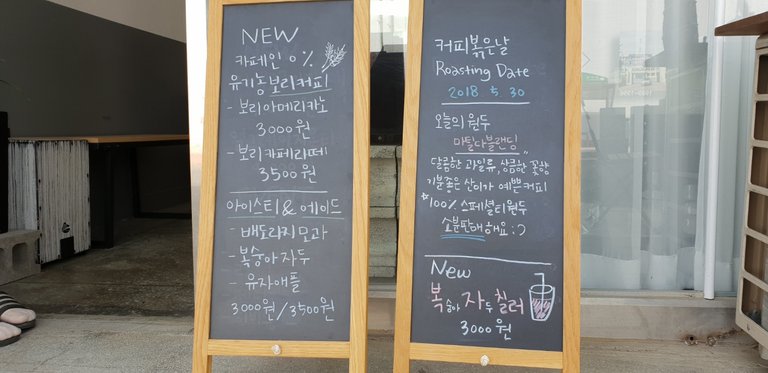 NEW
카페인 0%
유기농보리커피
- 보리아메리카노
3000원
- 보리카페라떼
3500원
아이스티 & 에이드
- 배도라지모과
- 복숭아자두
- 유자애플
3000원/3500원
커피볶은날
Roasting Date
2018 5.30
오늘의 원두
마틸다블랜딩
달콤한 과일류, 상큼한 꽃향
기분좋은 산미가 예쁜커피
☆100% 스페셜티원두
소분판매해요:)
New
복숭아 자두 칠러
3000원